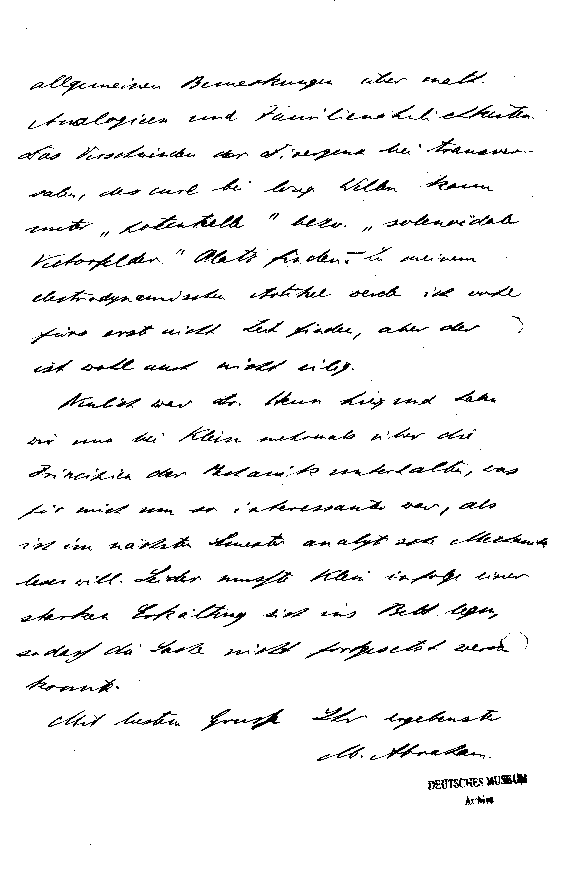 allgemeinen Bemerkungen über math.
Analogieen und Familienähnlichkeiten
Das Verschwinden der Divergenz bei transver-
salen, des curl bei long. Wellen kann
unter „potentielle" bezw. „solenoidale
Vectorfelder." Platz finden. – Zu meinem
elektrodynamischen Artikel werde ich wohl
fürs erst nicht Zeit finden, aber der
ist wohl auch nicht eilig.
Neulich war Dr. Heun hier und haben
wir uns bei Klein mehrmals über die
Principien der Mechanik unterhalten, was
für mich um so interessanter war, als
ich im nächsten Semester analyt Mechanik
lesen will. Leider musste Klein infolge einer
starken Erkältung sich ins Bett legen,
sodass die Sache nicht fortgesetzt werden
konnte.
Mit besten Gruss Ihr ergebenster
M. Abraham.
DEUTSCHES MUSEUM
Archiv